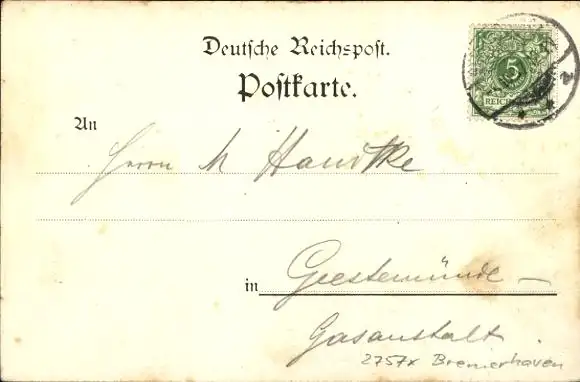 Deutsche Reichspost.
Postkarte.
5
REICHSPOST
An
Herrn M Hawtke
in Geestemünde –
Gasanstalt.
2757x Bremerhaven